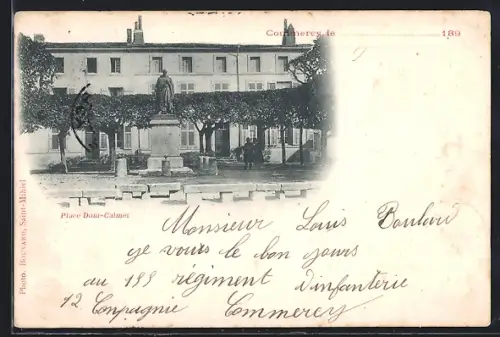 Commercy, le 189
Place Dom-Calmet
Photo. BOUVARD, Saint-Mihiel
Monsieur Louis Boulard
ye vous le bon jours
au 155 régiment d'infanterie
12 Conpagnie Commercy